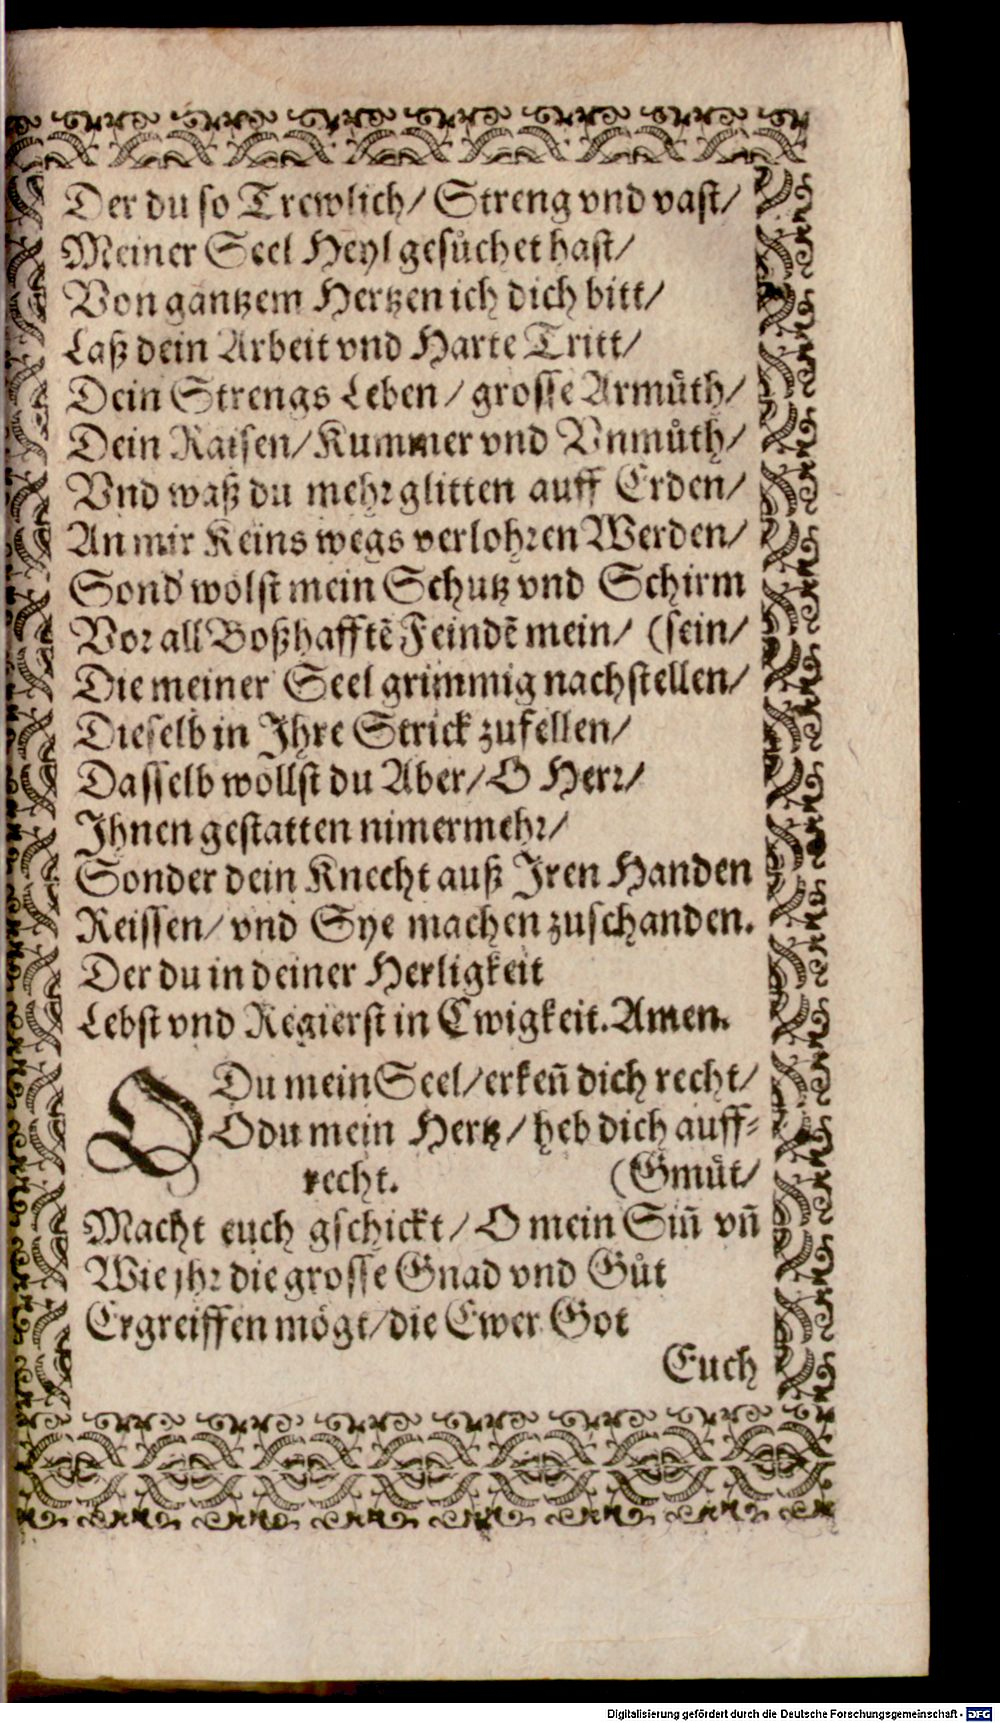 Der du so Trewlich/ Streng vnd vast/
Meiner Seel Heyl gesůchet hast/
Von gantzem Hertzen ich dich bitt/
Laß dein Arbeit vnd Harte Tritt/
Dein Strengs Leben/ grosse Armůth/
Dein Raisen/ Kummer vnd Vnmůth/
Vnd waß du mehr glitten auff Erden/
An mir Keins wegs verlohren Werden/
Sond' wölst mein Schutz vnd Schirm
Vor all Boßhafftẽ Feindẽ mein/ (sein/
Die meiner Seel grimmig nachstellen/
Dieselb in Ihre Strick zufellen/
Dasselb wöllst du Aber/ O Herr/
Ihnen gestatten nimermehr/
Sonder dein Knecht auß Iren Handen
Reissen/ vnd Sye machen zuschanden.
Der du in deiner Herligkeit
Lebst vnd Regierst in Ewigkeit. Amen.
O Du mein Seel/ erkeñ dich recht/
O du mein Hertz/ heb dich auff-
recht. (Gmüt/
Macht euch gschickt/ O mein Siñ vñ
Wie jhr die grosse Gnad vnd Gůt
Ergreiffen mögt/ die Ewer Got
Euch
Digitalisierung gefördert durch die Deutsche Forschungsgemeinschaft - DFG